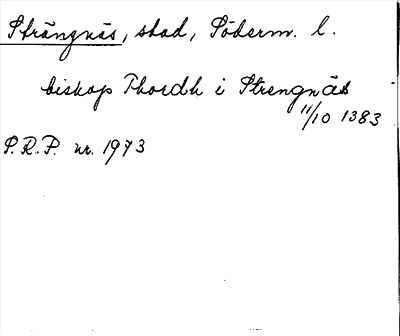 Strängnäs, stad, Söderm. l.
biskop Thordh i Strengnäs
11/10 1383
P.R.P. nr. 1973